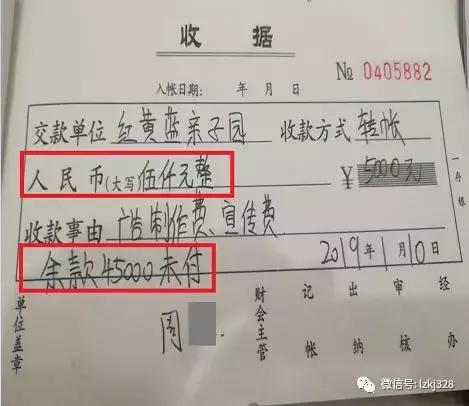 收据
№ 0405882
入帐日期： 年 月 日
交款单位 红黄蓝亲子园 收款方式 转帐
人民币(大写) 伍仟元整 ￥ 5000元
收款事由 广告制作费、宣传费
余款45000未付 2019年1月10日
单位盖章 周 财会主管 记帐 出纳 审核 经办
一存根
微信号: lzkj328